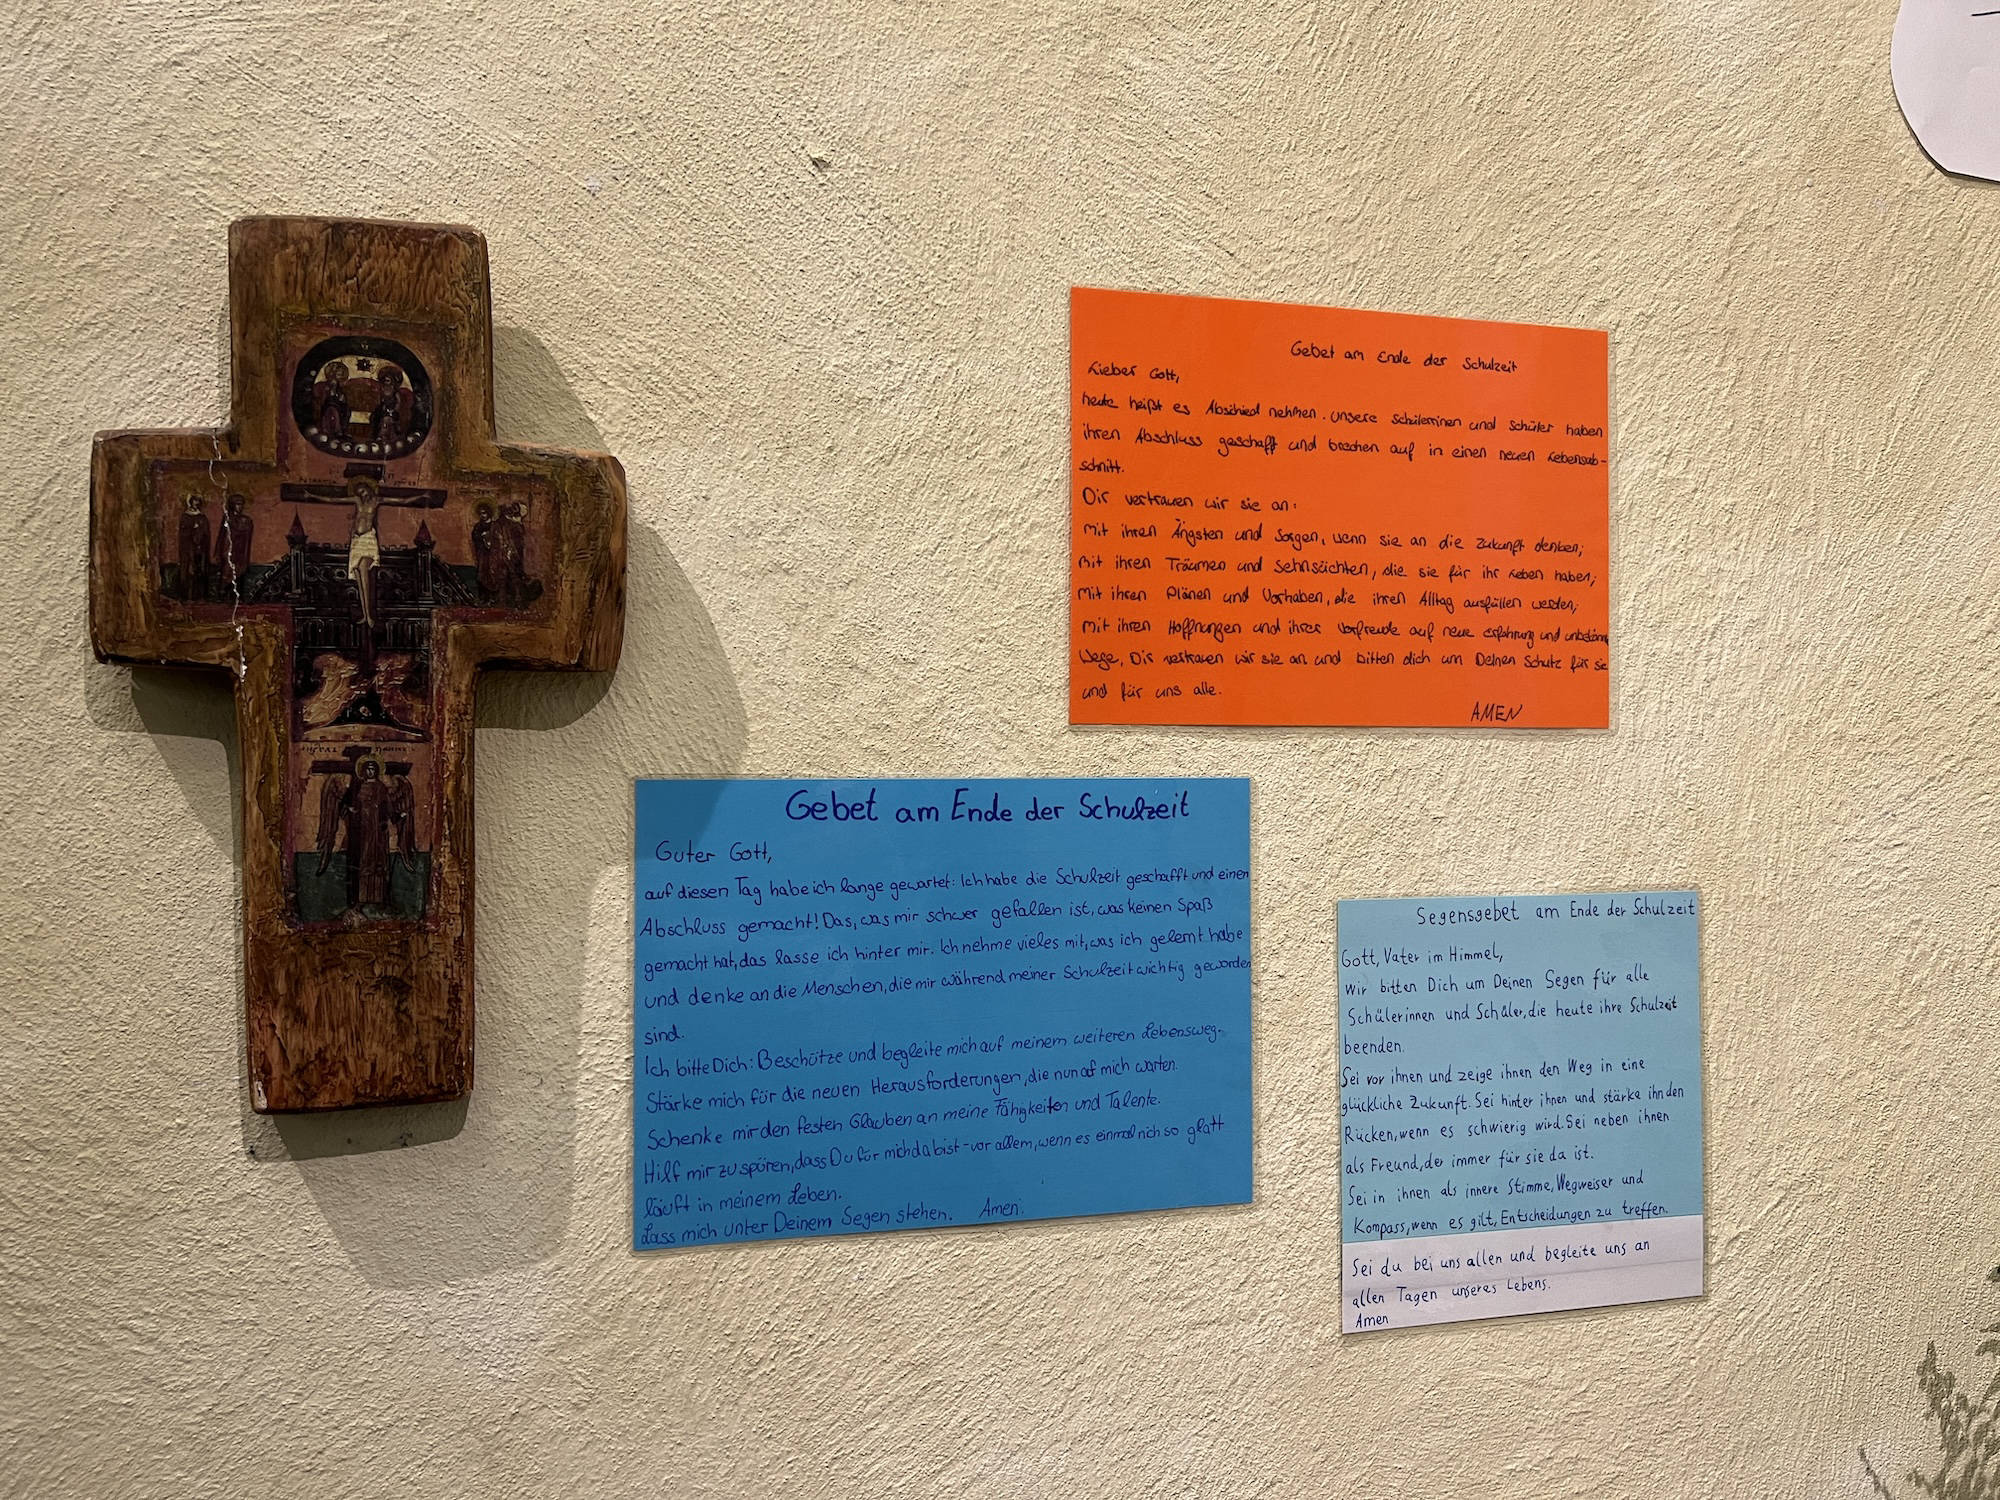 Gebet am Ende der Schulzeit
Lieber Gott,
heute heißt es Abschied nehmen. Unsere Schülerrinen und Schüler haben
ihren Abschluss geschafft und brechen auf in einen neuen Lebensab-
schnitt.
Dir vertrauen wir sie an:
mit ihren Ängsten und Sorgen, wenn sie an die Zukunft denken;
mit ihren Träumen und Sehnsüchten, die sie für ihr Leben haben;
mit ihren Plänen und Vorhaben, die ihren Alltag ausfüllen werden;
mit ihren Hoffnungen und ihrer Vorfreude auf neue Erfahrung und
Wege, Dir vertrauen wir sie an und bitten dich um Deinen Schutz für sie
und für uns alle.
AMEN
Gebet am Ende der Schulzeit
Guter Gott,
auf diesen Tag habe ich lange gewartet: Ich habe die Schulzeit geschafft und einen
Abschluss gemacht! Das, was mir schwer gefallen ist, was keinen Spaß
gemacht hat, das lasse ich hinter mir. Ich nehme vieles mit, was ich gelernt habe
und denke an die Menschen, die mir während meiner Schulzeit wichtig geworden
sind.
Ich bitte Dich: Beschütze und begleite mich auf meinem weiteren Lebensweg.
Stärke mich für die neuen Herausforderungen, die nun auf mich warten.
Schenke mir den festen Glauben an meine Fähigkeiten und Talente.
Hilf mir zu spüren, dass Du für mich da bist - vor allem, wenn es einmal nich so glatt
läuft in meinem Leben.
Lass mich unter Deinem Segen stehen. Amen.
Segensgebet am Ende der Schulzeit
Gott, Vater im Himmel,
wir bitten Dich um Deinen Segen für alle
Schülerinnen und Schüler, die heute ihre Schulzeit
beenden.
Sei vor ihnen und zeige ihnen den Weg in eine
glückliche Zukunft. Sei hinter ihnen und stärke ihnden
Rücken, wenn es schwierig wird. Sei neben ihnen
als Freund, der immer für sie da ist.
Sei in ihnen als innere Stimme, Wegweiser und
Kompass, wenn es gilt, Entscheidungen zu treffen.
Sei du bei uns allen und begleite uns an
allen Tagen unseres Lebens.
Amen